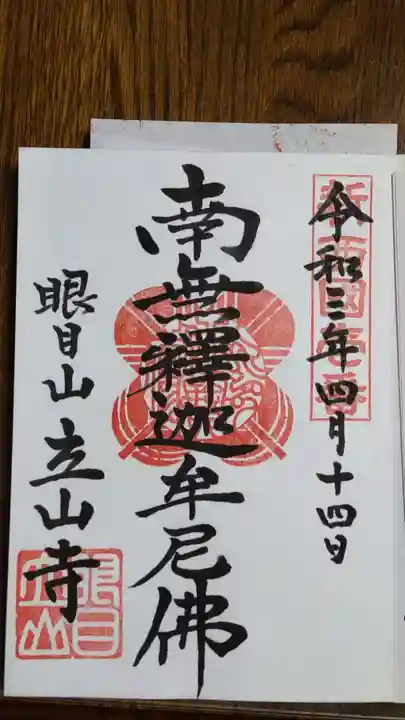 令和三年四月十四日
南無釋迦牟尼佛
眼目山立山寺
眼目
立山